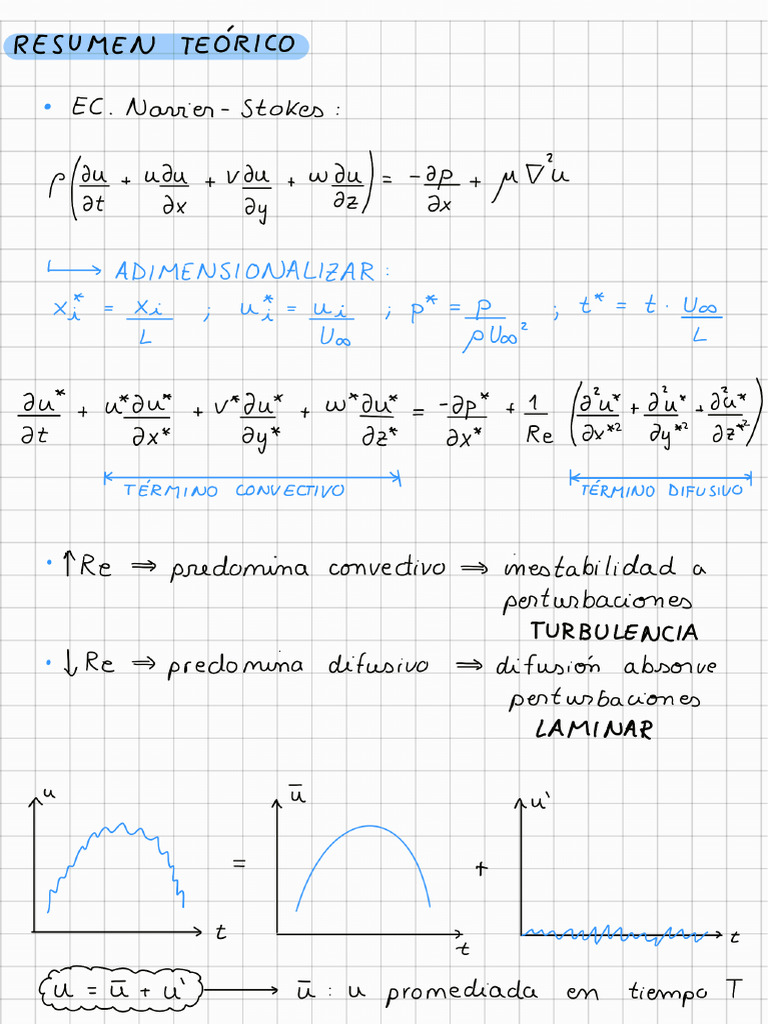 RESUMEN TEÓRICO
• EC. Navier-Stokes:
ρ(∂u/∂t + u∂u/∂x + v∂u/∂y + w∂u/∂z) = -∂p/∂x + μ∇²u
↳ ADIMENSIONALIZAR:
xᵢ* = xᵢ/L ; uᵢ* = uᵢ/U∞ ; p* = p/ρU∞² ; t* = t · U∞/L
∂u*/∂t + u*∂u*/∂x* + v*∂u*/∂y* + w*∂u*/∂z* = -∂p*/∂x* + 1/Re (∂²u*/∂x*² + ∂²u*/∂y*² + ∂²u*/∂z*²)
TÉRMINO CONVECTIVO TÉRMINO DIFUSIVO
• ↑Re ⇒ predomina convectivo ⇒ inestabilidad a
perturbaciones
TURBULENCIA
• ↓Re ⇒ predomina difusivo ⇒ difusión absorve
perturbaciones
LAMINAR
u ū u'
= +
t t t
u = ū + u' → ū : u promediada en tiempo T